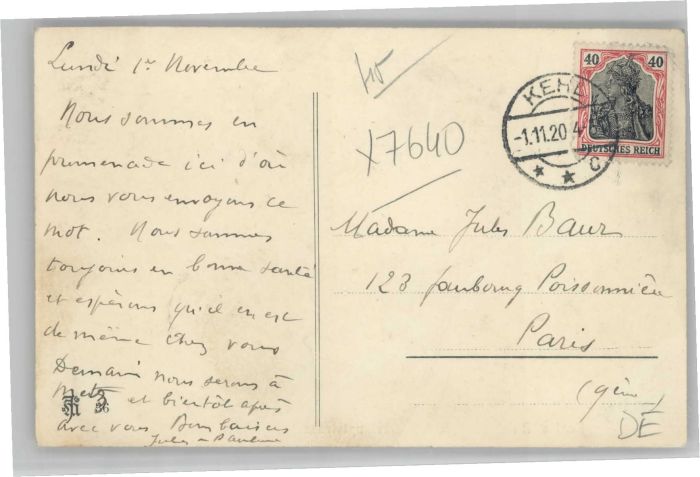 Lundi 1er Novembre
Nous sommes en
promenade ici d'où
nous vous envoyons ce
mot. Nous sommes
toujours en bonne santé
et espérons qu'il en est
de même chez vous
Demain nous serons à
Metz et bientôt après
avec vous Bons baisers
Jules et Pauline
36
X7640
40 40
DEUTSCHES REICH
KEHL
-1.11.20 4-
* * C
Madame Jules Baur
123 faubourg Poissonnière
Paris
(9ème)
DE